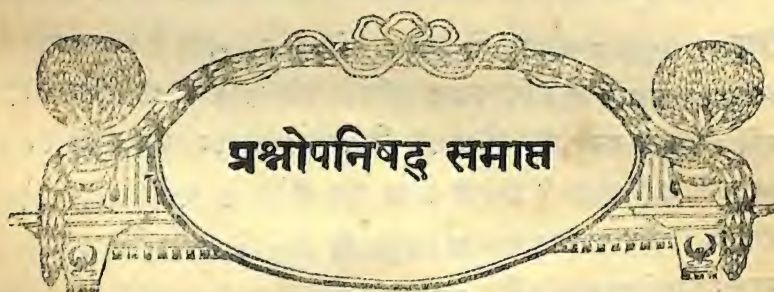 प्रश्नोपनिषद् समाप्त